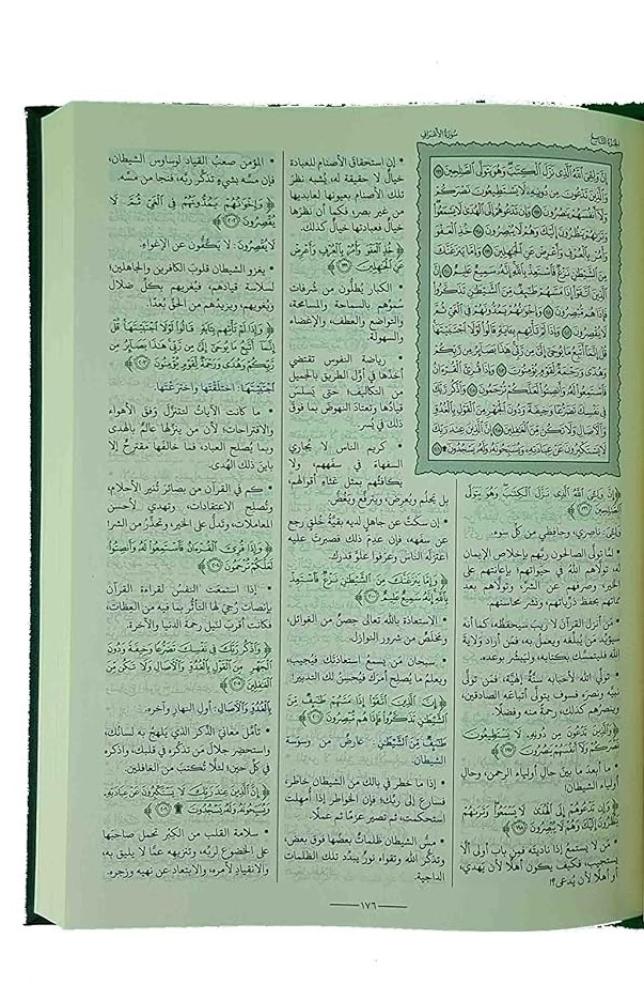 الجزء التاسع
سورة الأعراف
إِنَّ وَلِـِّۧيَ ٱللَّهُ ٱلَّذِي نَزَّلَ ٱلۡكِتَٰبَۖ وَهُوَ يَتَوَلَّى ٱلصَّٰلِحِينَ ١٩٦
وَٱلَّذِينَ تَدۡعُونَ مِن دُونِهِۦ لَا يَسۡتَطِيعُونَ نَصۡرَكُمۡ
وَلَآ أَنفُسَهُمۡ يَنصُرُونَ ١٩٧ وَإِن تَدۡعُوهُمۡ إِلَى ٱلۡهُدَىٰ لَا يَسۡمَعُواْۖ
وَتَرَىٰهُمۡ يَنظُرُونَ إِلَيۡكَ وَهُمۡ لَا يُبۡصِرُونَ ١٩٨ خُذِ ٱلۡعَفۡوَ
وَأۡمُرۡ بِٱلۡعُرۡفِ وَأَعۡرِضۡ عَنِ ٱلۡجَٰهِلِينَ ١٩٩ وَإِمَّا يَنزَغَنَّكَ
مِنَ ٱلشَّيۡطَٰنِ نَزۡغٞ فَٱسۡتَعِذۡ بِٱللَّهِۚ إِنَّهُۥ سَمِيعٌ عَلِيمٌ ٢٠٠ إِنَّ
ٱلَّذِينَ ٱتَّقَوۡاْ إِذَا مَسَّهُمۡ طَٰٓئِفٞ مِّنَ ٱلشَّيۡطَٰنِ تَذَكَّرُواْ
فَإِذَا هُم مُّبۡصِرُونَ ٢٠١ وَإِخۡوَٰنُهُمۡ يَمُدُّونَهُمۡ فِي ٱلۡغَيِّ ثُمَّ
لَا يُقۡصِرُونَ ٢٠٢ وَإِذَا لَمۡ تَأۡتِهِم بِـَٔايَةٖ قَالُواْ لَوۡلَا ٱجۡتَبَيۡتَهَاۚ
قُلۡ إِنَّمَآ أَتَّبِعُ مَا يُوحَىٰٓ إِلَيَّ مِن رَّبِّيۚ هَٰذَا بَصَآئِرُ مِن رَّبِّكُمۡ
وَهُدٗى وَرَحۡمَةٞ لِّقَوۡمٖ يُؤۡمِنُونَ ٢٠٣ وَإِذَا قُرِئَ ٱلۡقُرۡءَانُ
فَٱسۡتَمِعُواْ لَهُۥ وَأَنصِتُواْ لَعَلَّكُمۡ تُرۡحَمُونَ ٢٠٤ وَٱذۡكُر رَّبَّكَ
فِي نَفۡسِكَ تَضَرُّعٗا وَخِيفَةٗ وَدُونَ ٱلۡجَهۡرِ مِنَ ٱلۡقَوۡلِ بِٱلۡغُدُوِّ
وَٱلۡأٓصَالِ وَلَا تَكُن مِّنَ ٱلۡغَٰفِلِينَ ٢٠٥ إِنَّ ٱلَّذِينَ عِندَ رَبِّكَ
لَا يَسۡتَكۡبِرُونَ عَنۡ عِبَادَتِهِۦ وَيُسَبِّحُونَهُۥ وَلَهُۥ يَسۡجُدُونَۤ ٢٠٦
﴿إِنَّ وَلِـِّۧيَ ٱللَّهُ ٱلَّذِي نَزَّلَ ٱلۡكِتَٰبَۖ وَهُوَ يَتَوَلَّى
ٱلصَّٰلِحِينَ ١٩٦﴾
وَلِيِّيَ: ناصري، وحافظي من كل سوء.
• لمّا تولّى الصالحون ربّهم بإخلاص الإيمان
له، تولّاهم اللهُ في حيواتهم؛ بإعانتهم على
الخير، وصرفهم عن الشرّ، وتولّاهم بعد
مماتهم بحفظ ذريّاتهم، ونشر محاسنهم.
• مَن أنزل القرآن لا ريب سيحفظه، كما أنه
سيؤيّد مَن يُبلِّغه ويعمل به، فمَن أراد وَلاية
الله فليتمسّك بكتابه، وليَبشَر بوعده.
• تولّي الله لأحبابه سُنّةٌ إلهيَّة، فمَن تولّى
نبيَّه ونصرَه فسوف يتولّى أتباعَه الصادقين،
وينصرهم كذلك، رحمةً منه وفضلًا.
﴿وَٱلَّذِينَ تَدۡعُونَ مِن دُونِهِۦ لَا يَسۡتَطِيعُونَ
نَصۡرَكُمۡ وَلَآ أَنفُسَهُمۡ يَنصُرُونَ ١٩٧﴾
• ما أبعدَ ما بين حالِ أولياء الرحمن، وحالِ
أولياء الشيطان!
﴿وَإِن تَدۡعُوهُمۡ إِلَى ٱلۡهُدَىٰ لَا يَسۡمَعُواْۖ وَتَرَىٰهُمۡ
يَنظُرُونَ إِلَيۡكَ وَهُمۡ لَا يُبۡصِرُونَ ١٩٨﴾
• مَن لا يستمعُ إذا ناديتَه فمِن بابِ أولى ألّا
يستجيب، فكيف يكون أهلًا لأن يَهدي،
أو أهلًا لأن يُدعى؟!
• إن استحقاق الأصنام للعبادة
خيالٌ لا حقيقة له، يُشبه نظرَ
تلك الأصنام بعيونها لعابديها
من غير بصر، فكما أن نظرَها
خيالٌ فعبادتها خيالٌ كذلك.
﴿خُذِ ٱلۡعَفۡوَ وَأۡمُرۡ بِٱلۡعُرۡفِ وَأَعۡرِضۡ
عَنِ ٱلۡجَٰهِلِينَ ١٩٩﴾
• الكبار يُطلّون من شُرفات
سُموّهم بالسماحة والمسامحة،
والتواضع والعطف، والإغضاء
والسهولة.
• رياضة النفوس تقتضي
أخذَها في أوّل الطريق بالجميل
من التكاليف؛ حتى يَسلس
قيادُها وتعتادَ النهوض بما فوق
ذلك في يُسر.
• كريم الناس لا يُجاري
السفهاءَ في سفههم، ولا
يكافئهم بمثل غثاءِ أقوالهم،
بل يحلُم ويُعرض، ويترفّع ويَغُضّ.
• إن سكتَّ عن جاهلٍ لديه بقيّةُ خُلقٍ رجع
عن سفهه، فإن عدِمَ ذلك فصبرتَ عليه
اعتزله الناسُ وعرَفوا علوَّ قدرك.
﴿وَإِمَّا يَنزَغَنَّكَ مِنَ ٱلشَّيۡطَٰنِ نَزۡغٞ فَٱسۡتَعِذۡ
بِٱللَّهِۚ إِنَّهُۥ سَمِيعٌ عَلِيمٌ ٢٠٠﴾
• الاستعاذة بالله تعالى حِصنٌ من الغوائل،
ومخلِّصٌ من شرور النوازل.
• سبحان مَن يسمعُ استعاذتَك فيُجيب،
ويعلمُ ما يُصلح أمرَك فيُحسنُ لك التدبير!
﴿إِنَّ ٱلَّذِينَ ٱتَّقَوۡاْ إِذَا مَسَّهُمۡ طَٰٓئِفٞ مِّنَ
ٱلشَّيۡطَٰنِ تَذَكَّرُواْ فَإِذَا هُم مُّبۡصِرُونَ ٢٠١﴾
طَٰٓئِفٞ مِّنَ ٱلشَّيۡطَٰنِ: عارضٌ من وسوسة
الشيطان.
• إذا ما خطر في بالك من الشيطان خاطر،
فسارِع إلى ربِّك؛ فإن الخواطر إذا أُمهلت
استحكمت، ثم تصير عزمًا ثم عملًا.
• مسُّ الشيطان ظلماتٌ بعضُها فوق بعض،
وتذكُّر الله وتقواه نورٌ يبدّد تلك الظلماتِ
الداجية.
• المؤمن صعبُ القياد لوساوس الشيطان،
فإن مسَّه بشيءٍ تذكّر ربَّه، فنجا من مسّه.
﴿وَإِخۡوَٰنُهُمۡ يَمُدُّونَهُمۡ فِي ٱلۡغَيِّ ثُمَّ لَا
يُقۡصِرُونَ ٢٠٢﴾
لَا يُقۡصِرُونَ: لا يَكُفّون عن الإغواء.
• يغزو الشيطان قلوبَ الكافرين والجاهلين؛
لسلاسة قيادهم، فيُغريهم بكلِّ ضلال
ويُغويهم، ويزيدهم من الحقِّ بُعدًا.
﴿وَإِذَا لَمۡ تَأۡتِهِم بِـَٔايَةٖ قَالُواْ لَوۡلَا ٱجۡتَبَيۡتَهَاۚ قُلۡ
إِنَّمَآ أَتَّبِعُ مَا يُوحَىٰٓ إِلَيَّ مِن رَّبِّيۚ هَٰذَا بَصَآئِرُ مِن
رَّبِّكُمۡ وَهُدٗى وَرَحۡمَةٞ لِّقَوۡمٖ يُؤۡمِنُونَ ٢٠٣﴾
ٱجۡتَبَيۡتَهَا: اختلقْتَها واخترعْتَها.
• ما كانت الآياتُ لتتنزّلَ وَفقَ الأهواء
والاقتراحات؛ لأن من ينزلها عالمٌ بالهدى
وبما يُصلح العباد، فما خالفها مقترحٌ إلا
باينَ ذلك الهُدى.
• كم في القرآن من بصائرَ تُنير الأحلام،
وتُصلح الاعتقادات، وتهدي لأحسن
المعاملات، وتدلّ على الخير، وتحذّر من الشر!
﴿وَإِذَا قُرِئَ ٱلۡقُرۡءَانُ فَٱسۡتَمِعُواْ لَهُۥ وَأَنصِتُواْ
لَعَلَّكُمۡ تُرۡحَمُونَ ٢٠٤﴾
• إذا استمعَت النفسُ لقراءة القرآن
بإنصاتٍ رُجيَ لها التأثّر بما فيه من العِظات،
فكانت أقربَ لنيل رحمة الدنيا والآخرة.
﴿وَٱذۡكُر رَّبَّكَ فِي نَفۡسِكَ تَضَرُّعٗا وَخِيفَةٗ وَدُونَ
ٱلۡجَهۡرِ مِنَ ٱلۡقَوۡلِ بِٱلۡغُدُوِّ وَٱلۡأٓصَالِ وَلَا تَكُن مِّنَ
ٱلۡغَٰفِلِينَ ٢٠٥﴾
بِٱلۡغُدُوِّ وَٱلۡأٓصَالِ: أولَ النهار وآخره.
• تأمّل معانيَ الذكر الذي يلهَج به لسانُك،
واستحضِر جلالَ مَن تذكُره في قلبك، واذكره
في كلّ حين؛ لئلّا تُكتبَ من الغافلين.
﴿إِنَّ ٱلَّذِينَ عِندَ رَبِّكَ لَا يَسۡتَكۡبِرُونَ عَنۡ عِبَادَتِهِۦ
وَيُسَبِّحُونَهُۥ وَلَهُۥ يَسۡجُدُونَۤ ۩ ٢٠٦﴾
• سلامة القلب من الكِبْر تحمل صاحبَها
على الخضوع لربِّه، وتنزيهه عمّا لا يليق به،
والانقيادِ لأمره، والابتعادِ عن نهيه وزجره.
١٧٦